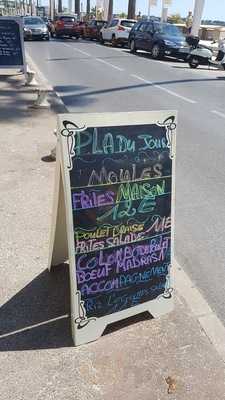 PLAT DU JOUR
MOULES
FRITES MAISON
12€
POULET BRAISE
FRITES SALADE 11€
COLOMBO DE POULET
BOEUF MADRAS
ACCOMPAGNEMENT
RIZ LEGUMES SALADE